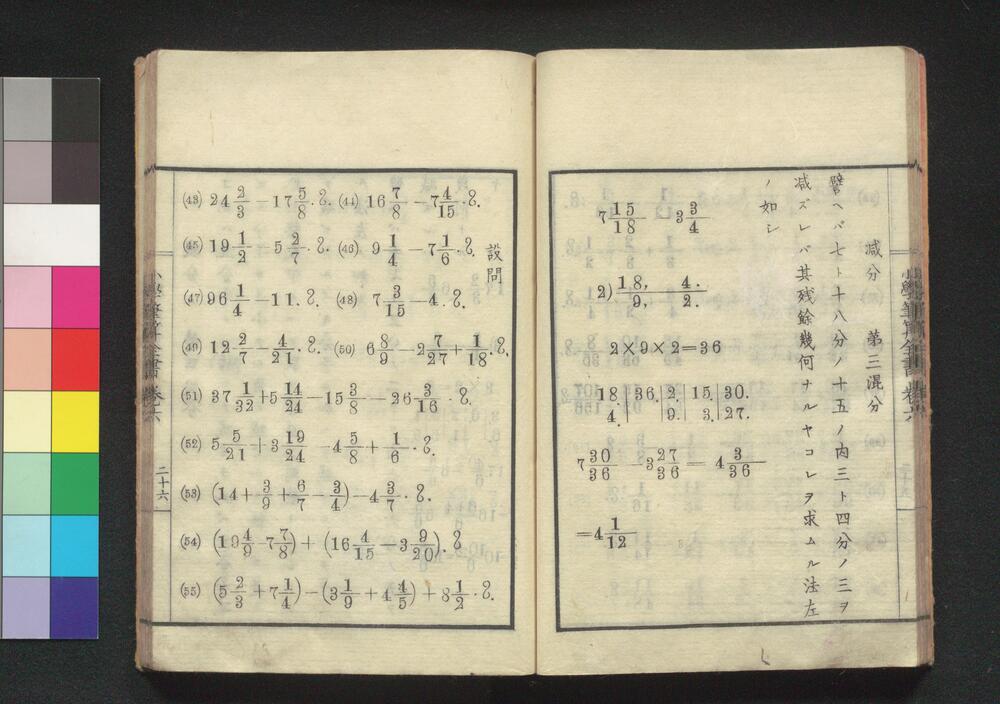 減分　第三混分
譬ヘバ七ト十八分ノ十五ノ内三ト四分ノ三ヲ
減ズレバ其残餘幾何ナルヤコレヲ求ムル法左
ノ如シ
7 15/18 − 3 3/4
2) 18, 4.
9, 2.
2×9×2=36
18. | 36. | 2. | 15. | 30.
4. | 9. | 3. | 27.
7 30/36 − 3 27/36 = 4 3/36
=4 1/12
小學筆算全書 卷六
設問
(43) 24 2/3 − 17 5/8 . ?. (44) 16 7/8 − 7 4/15 . ?.
(45) 19 1/2 − 5 2/7 . ?. (46) 9 1/4 − 7 1/6 . ?.
(47) 96 1/4 − 11. ?. (48) 7 3/15 − 4. ?.
(49) 12 2/7 − 4/21 . ?. (50) 6 8/9 − 2 7/27 + 1/18 . ?.
(51) 37 1/32 + 5 14/24 − 15 3/8 − 26 3/16 . ?.
(52) 5 5/21 + 3 19/24 − 4 5/8 + 1/6 . ?.
(53) (14 + 3/9 + 6/7 − 3/4) − 4 3/7 . ?.
(54) (19 4/9 − 7 7/8) + (16 4/15 − 3 9/20). ?
(55) (5 2/3 + 7 1/4) − (3 1/9 + 4 4/5) + 8 1/2 . ?.
小學筆算全書 卷六
二十六